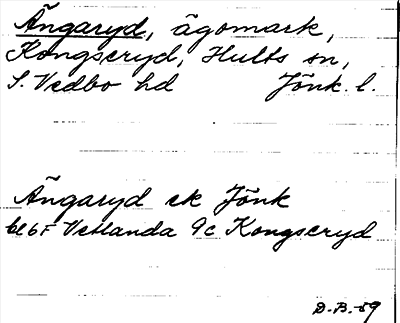 Ängaryd, ägomark,
Kongseryd, Hults sn,
S. Vedbo hd Jönk. l.
Ängaryd ek Jönk
bl 6F Vetlanda 9c Kongseryd
D.B.-59